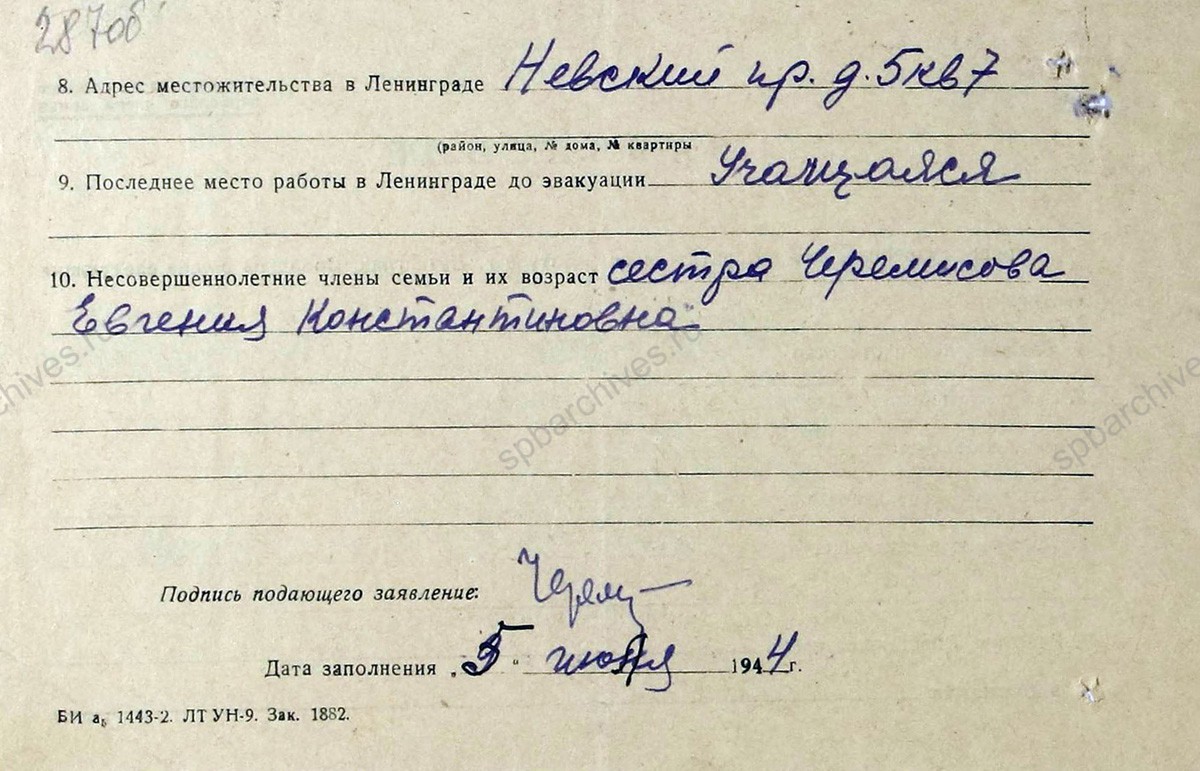 28706
8. Адрес местожительства в Ленинграде Невский пр. д. 5 кв 7
(район, улица, № дома, № квартиры
9. Последнее место работы в Ленинграде до эвакуации Учащаяся
10. Несовершеннолетние члены семьи и их возраст сестра Черемисова
Евгения Константиновна
spbarchives.ru
Подпись подающего заявление:
Дата заполнения „5" 1944 г.
БИ аь 1443-2. ЛТ УН-9. Зак. 1882.